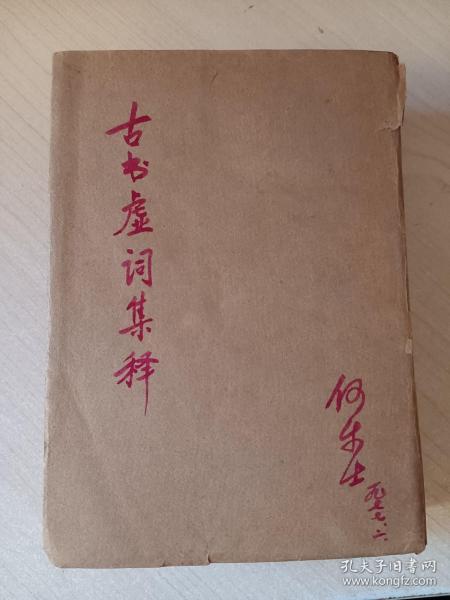 古书虚词集释
何乐士
一九七七、六、
孔夫子旧书网
www.kongfz.com